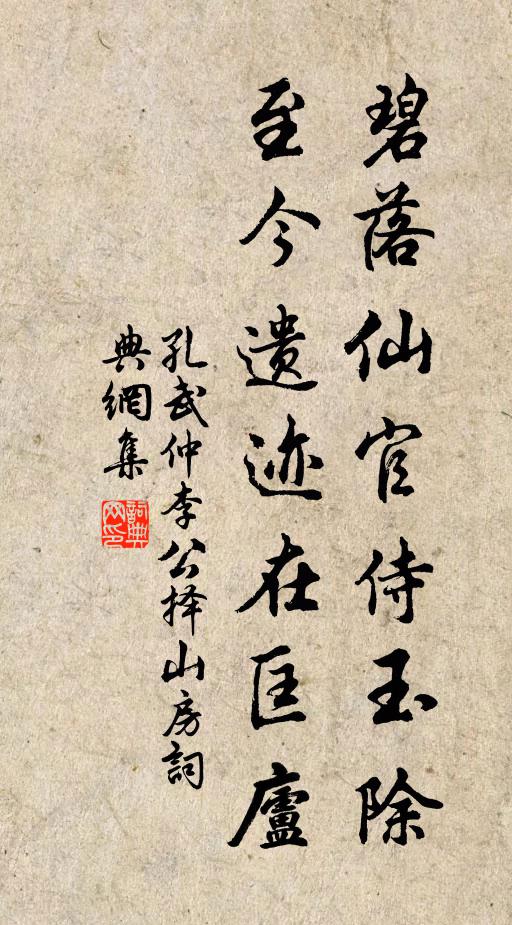 碧落仙官侍玉除
至今遗迹在匡廬
孔武仲李公择山房詞
典網集
詞典网印